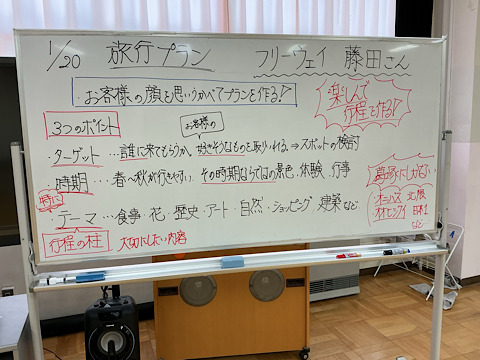 1/20 旅行プラン フリーウェイ 藤田さん
・お客様の顔を思いうかべてプランを作る!
楽しんで行程を作る!
3つのポイント
お客様の
・ターゲット…誰に来てもらうか。好きそうなものを取り入れる。⇒スポットの検討
・時期…春〜秋が行きやすい その時期ならではの景色、体験、行事
特に
・テーマ…食事・花・歴史・アート・自然・ショッピング・建築など
行程の柱 大切にしたい内容
など